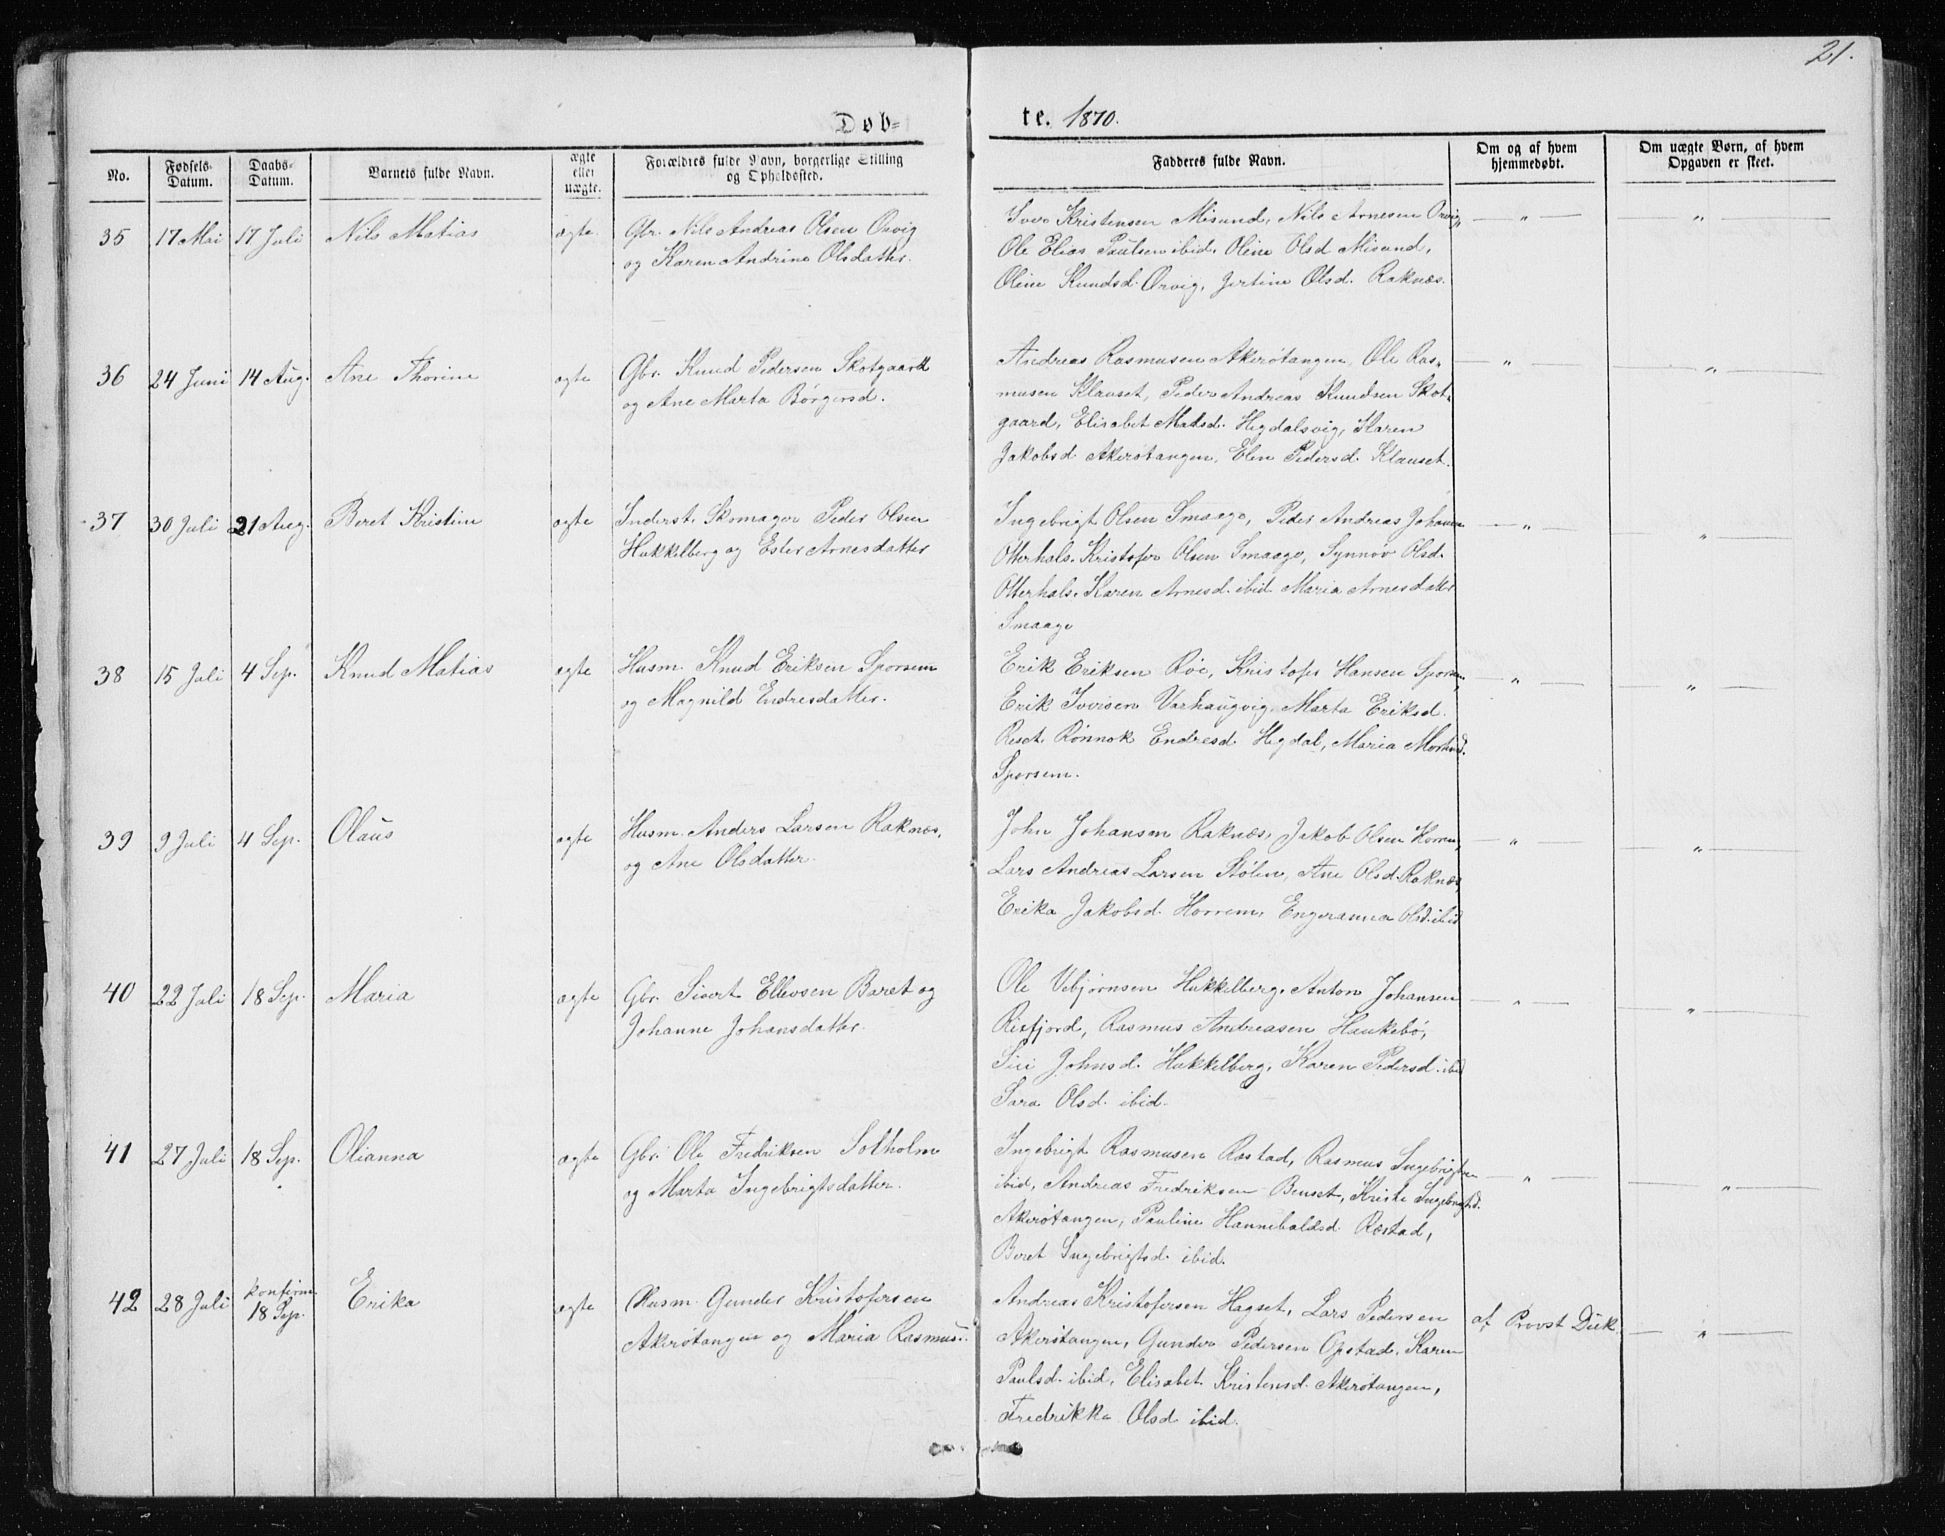 21.
Døb-
te. 1870.
No.
Fødsels-Datum.
Daabs-Datum.
Barnets fulde Navn.
ægte eller uægte.
Forældres fulde Navn, borgerlige Stilling og Opholdssted.
Fadderes fulde Navn.
Om og af hvem hjemmedøbt.
Om uægte Børn, af hvem Opgaven er skeet.
35 17 Mai 17 Juli Nils Matias ægte. Gbr. Nils Andreas Olsen Orvig
og Karen Andrine Olsdatter.
Iver Kristensen Misund, Nils Arnesen Orvig, — " — "
Ole Elias Paulsen ibid. Oline Olsd Misund,
Oline Knudsd. Orvig, Jertine Olsd. Raknæs.
36 24 Juni 14 Aug. Ane Thorine ægte Gbr. Knud Pedersen Skotgaard
og Ane Marta Børgersd.
Andreas Rasmusen Akerøtangen, Ole Ras- — " — — " —
musen Klauset, Peder Andreas Knudsen Skot-
gaard, Elisabet Matsd. Hegdalsvig, Karen
Jakobsd Akerøtangen, Elen Pedersd. Klauset.
37 30 Juli 21 Aug. Beret Kristine ægte Inderst. Skomager Peder Olsen
Hukkelberg og Ester Arnesdatter
Ingebrigt Olsen Smaage, Peder Andreas Johansen — " — — " —
Otterhals. Kristofer Olsen Smaage, Synnøv Olsd.
Otterhals. Karen Arnesd. ibid Maria Arnesdatter
Smaage
38 15 Juli 4 Sep. Knud Matias ægte Husm. Knud Eriksen Sporsem
og Magnild Endresdatter.
Erik Eriksen Røe, Kristofer Hansen Sporsem, — " — — " —
Erik Iversen Varhaugvig. Marta Eriksd.
Reset. Rønnok Endresd. Hegdal, Maria
Sporsem.
39 9 Juli 4 Sep. Olaus ægte Husm. Anders Larsen Raknæs,
og Ane Olsdatter.
John Johansen Raknæs, Jakob Olsen Horrem, — " — — " —
Lars Andreas Larsen Stølen, Ane Olsd. Raknæs,
Erika Jakobsd. Horrem, Engeranna Olsd. ibid
40 22 Juli 18 Sep. Maria ægte Gbr. Sivert Ellevsen Baret og
Johanne Johansdatter.
Ole Vebjørnsen Hukkelberg, Anton Johansen — " — — " —
Risfjord, Rasmus Andreasen Haukebø,
Siri Johnsd. Hukkelberg, Karen Pedersd. ibid
Sara Olsd. ibid.
41 27 Juli 18 Sep. Olianna ægte Gbr. Ole Fredriksen Solholm
og Marta Ingebrigtsdatter.
Ingebrigt Rasmusen Ræstad, Rasmus Ingebrigtsen — " — — " —
ibid, Andreas Fredriksen Benset, Kristi Ingebrigtsd.
Akerøtangen, Pauline Hannibalsd. Ræstad,
Beret Ingebrigtsd. ibid.
42 28 Juli konfirm. 18 Sep. Erika ægte Husm. Gunder Kristofersen
Akerøtangen og Maria Rasmusd.
Andreas Kristofersen Hagset, Lars Pedersen af Provst Duk. — " —
Akerøtangen, Gunder Pedersen Opstad, Karen
Paulsd. ibid, Elisabet Kristensd. Akerøtangen,
Fredrikke Olsd. ibid.